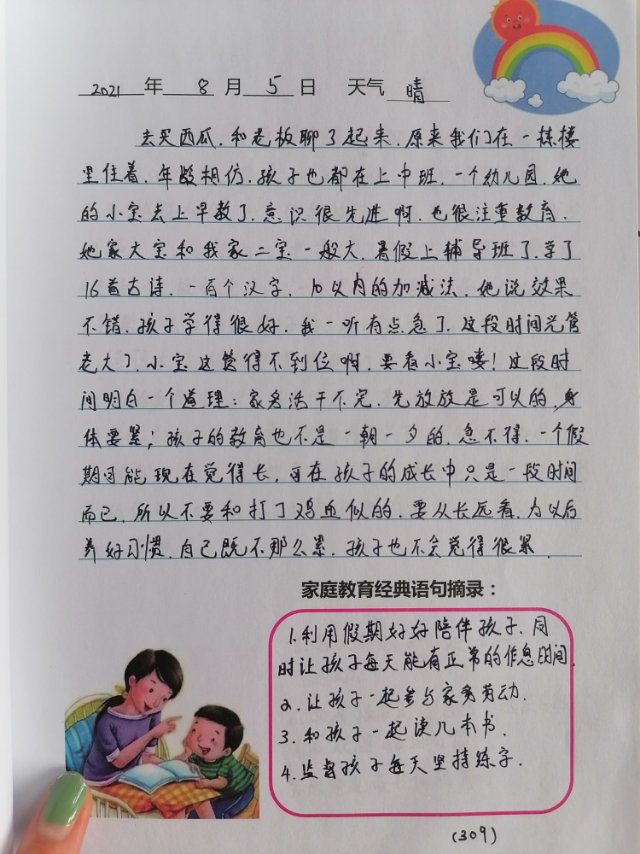 2021 年 8 月 5 日 天气 晴
去买西瓜，和老板聊了起来，原来我们在一栋楼
里住着，年龄相仿，孩子也都在上中班，一个幼儿园，她
的小宝去上早教了，意识很先进啊，也很注重教育，
她家大宝和我家二宝一般大，暑假上辅导班了，学了
16首古诗，一百个汉字，10以内的加减法，她说效果
不错，孩子学得很好，我一听有点急了，这段时间光管
老大了，小宝这觉得不到位啊，要看小宝喽！这段时
间明白一个道理：家务活干不完，先放放是可以的，身
体要紧；孩子的教育也不是一朝一夕的，急不得，一个假
期可能现在觉得长，可在孩子的成长中只是一段时间
而已，所以不要和打了鸡血似的，要从长远看，为以后
养好习惯，自己既不那么累，孩子也不会觉得很累．
家庭教育经典语句摘录：
1.利用假期好好陪伴孩子，同
时让孩子每天能有正常的作息时间．
2.让孩子一起参与家务劳动．
3.和孩子一起读几本书
4.监督孩子每天坚持练字．
(309)